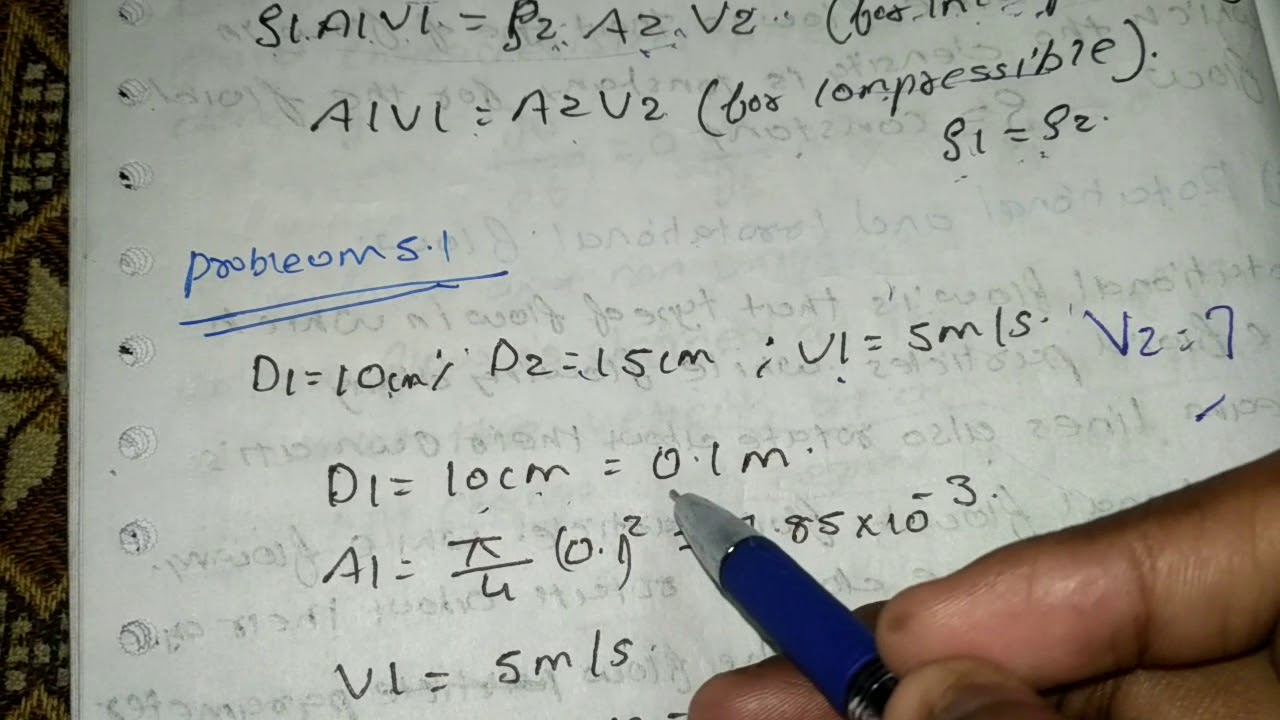 ρ1.A1V1 = ρ2. A2. V2. (for in
A1V1 = A2V2 (for compressible).
ρ1 = ρ2.
probleom 5.1
D1=10cm; D2=15cm ; V1= 5m/s. V2=?
D1= 10cm = 0.1m.
A1= π/4 (0.1)² = .85×10⁻³.
V1= 5m/s.